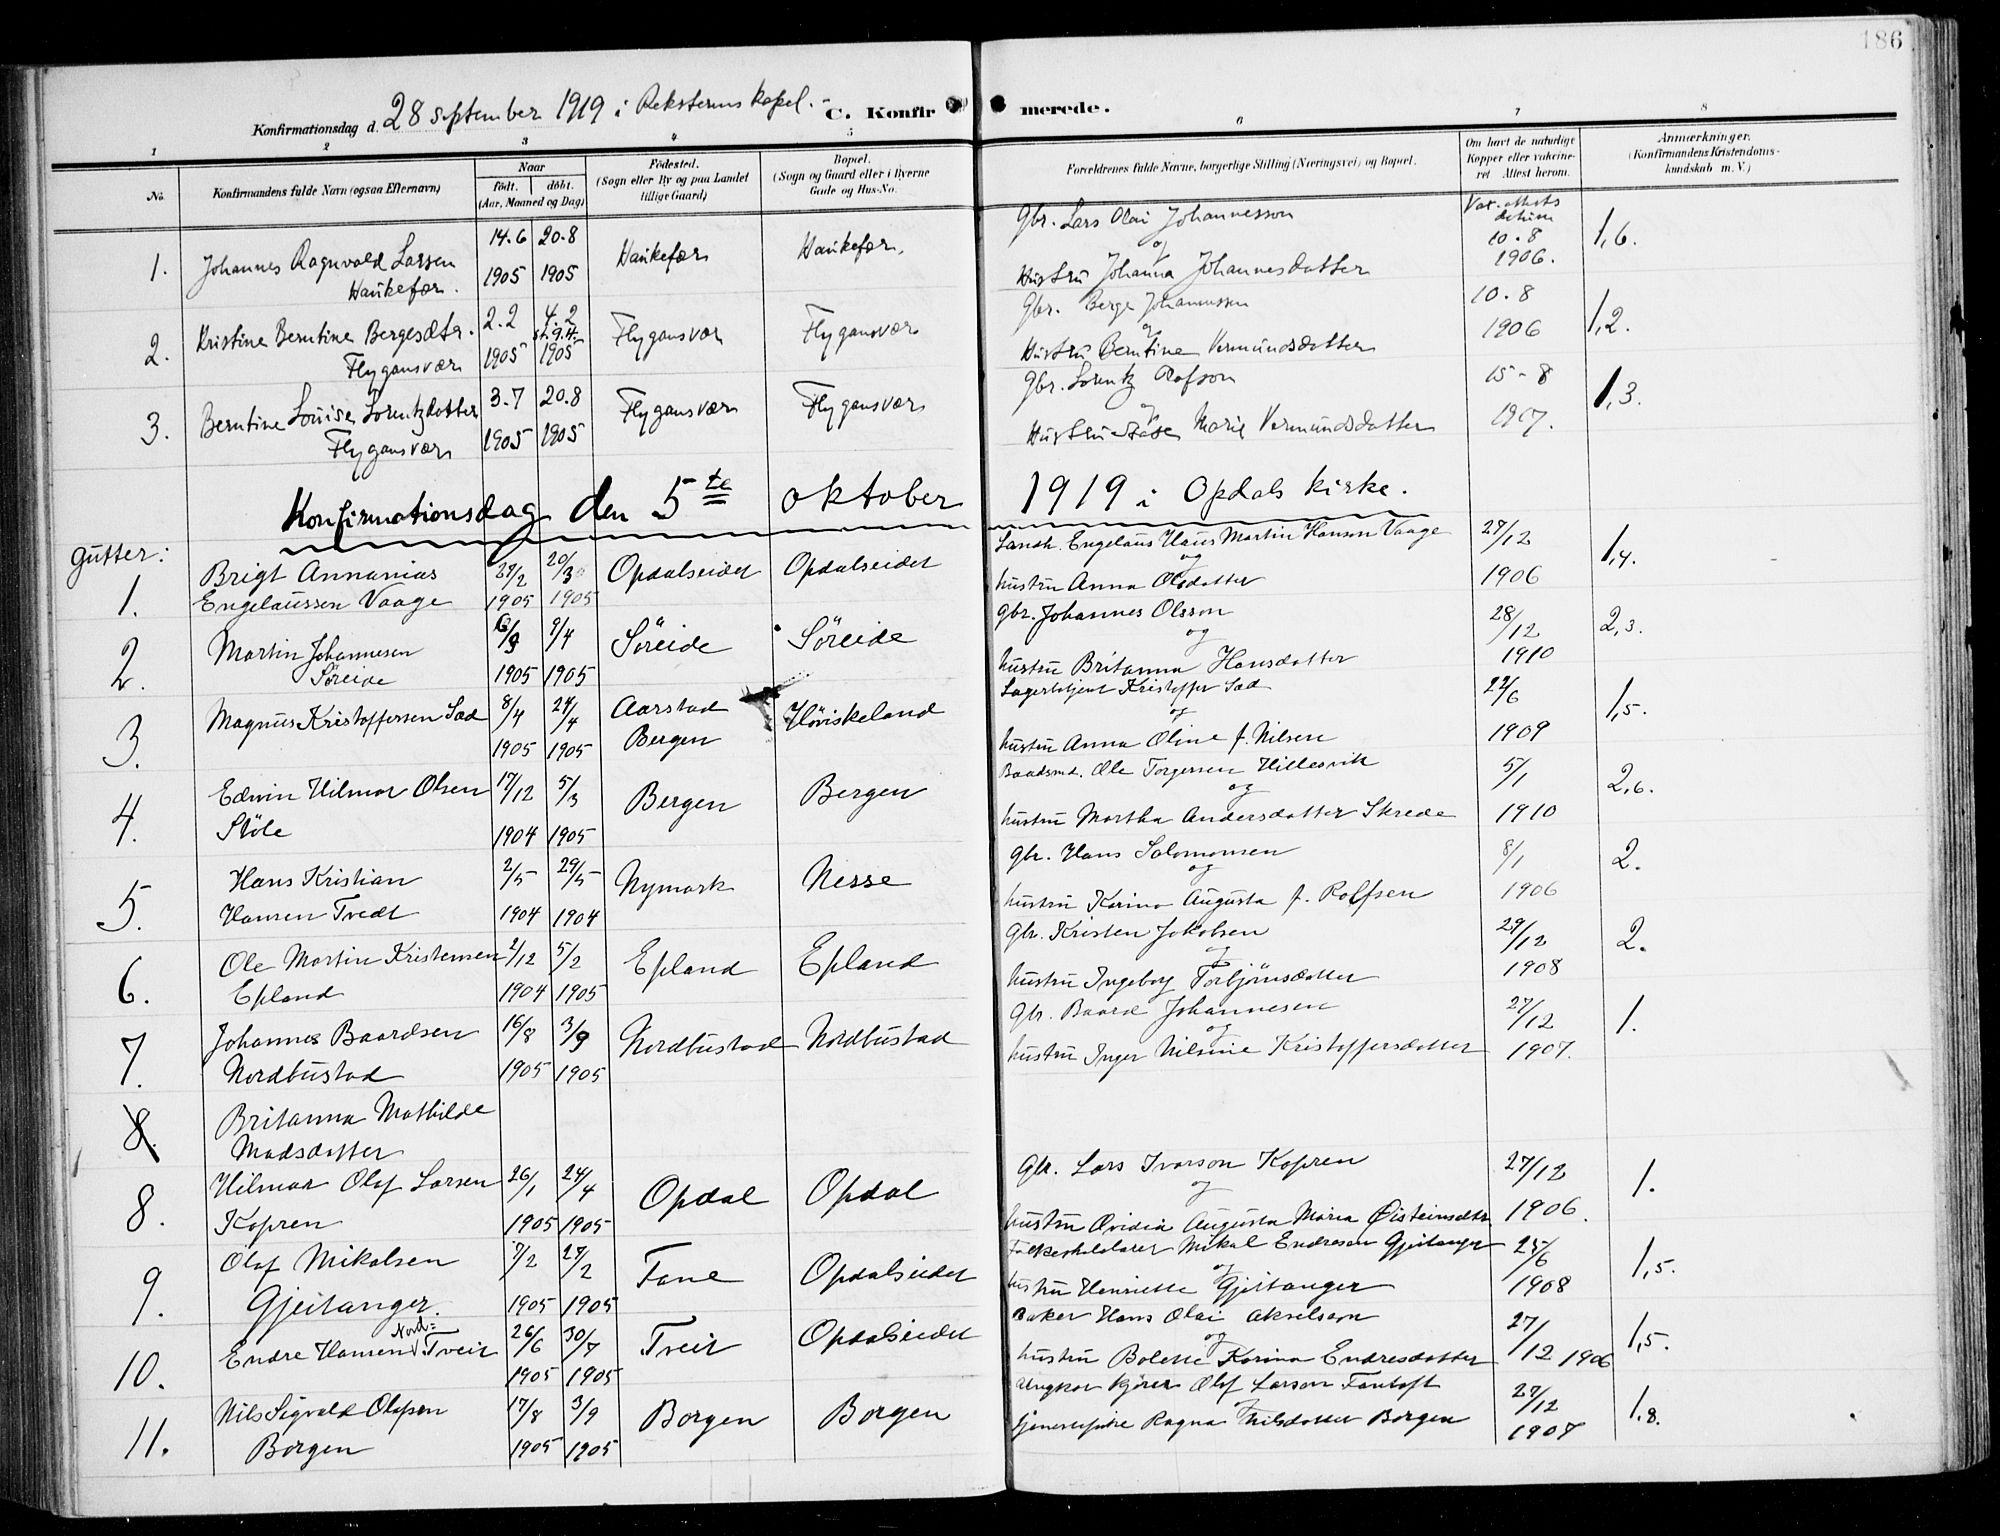 186
Konfirmationsdag d. 28 september 1919 i Reksterens kapel.
C. Konfirmerede.
1 2 3 4 5 6 7 8
No. Konfirmandens fulde Navn (ogsaa Efternavn) Naar født. døbt. (Aar, Maaned og Dag) Fødested. (Sogn eller By og paa Landet tillige Gaard) Bopæl. (Sogn og Gaard eller i Byerne Gade og Hus-No. Forældrenes fulde Navne, borgerlige Stilling (Næringsvei) og Bopæl. Om havt de naturlige Kopper eller vakcineret. Attest herom. Anmærkninger. (Konfirmandens Kristendomskundskab m. V.)
1. Johannes Ragnvald Larsen 14.6 20.8 Haukefær Haukefær. Gbr. Lars Olai Johannesson Vax. attest 1,6.
og 10.8
Haukefær. 1905 1905 Hustru Johanna Johannesdatter 1906.
2. Kristine Berntine Bergesdtr. 2.2 4.2 Flygansvær Flygansvær Gbr. Berge Johannessen 10.8 1,2.
og
Flygansvær 1905 1905 Hustru Berntine Vermundsdatter 1906
3. Berntine Louise Lorentzdatter 3.7 20.8 Flygansvær Flygansvær Gbr. Lorentz Olafson 15-8 1,3.
og
Flygansvær 1905 1905 Hustru Aase Marie Vermundsdatter 1907.
Konfirmationsdag den 5te oktober 1919 i Opdals kirke.
Gutter:
1. Brigt Annanias 27/2 20/3 Opdalseidet Opdalseidet Landh. Engelaus Hans Martin Hanson Vaage 27/12 1,4.
og
Engelaussen Vaage 1905 1905 hustru Anna Olsdatter 1906
2. Martin Johannesen 6/3 9/4 Søreide Søreide gbr. Johannes Olsson 28/12 2,3.
og
Søreide 1905 1905 hustru Britanna Hansdatter 1910
3. Magnus Kristoffersen Sæd 8/4 24/4 Aarstad Høviskeland Lagerbetjent Kristoffer Sæd 22/6 1,5.
og
1905 1905 Bergen hustru Anna Oline f. Nilsen 1909
4. Edwin Hilmar Olsen 17/12 5/3 Bergen Bergen Baadsmd. Ole Torgersen Hillesvik 5/1 2,6.
og
Støle 1904 1905 hustru Martha Andersdatter Skrede 1910
5. Hans Kristian 2/5 29/5 Nymark Nesse gbr. Hans Salomonsen 8/1 2.
og
Hansen Tvedt 1904 1904 hustru Karina Augusta f. Rolfsen 1906
6. Ole Martin Kristensen 2/12 5/2 Epland Epland Gbr. Kristen Jakobsen 29/12 2.
og
Epland 1904 1905 hustru Ingeborg Torbjørnsdatter 1908
7. Johannes Baardsen 16/8 3/9 Nordbustad Nordbustad Gbr. Baard Johannesen 27/12 1.
og
Nordbustad 1905 1905 hustru Inger Nilsine Kristoffersdatter 1907.
8. Britanna Mathilde
Madsdatter
8. Hilmar Olaf Larsen 26/1 24/4 Opdal Opdal Gbr. Lars Ivarson Kopren 27/12 1.
og
Kopren 1905 1905 hustru Ovidia Augusta Maria Øisteinsdtr 1906.
9. Olaf Mikalsen 7/2 27/2 Fane Opdalseidet Folkeskolelærer Mikal Endresen Gjeitanger 25/6 1,5.
og
Gjeitanger. 1905 1905 hustru Henriette Gjeitanger 1908
10. Endre Hansen Nord=Tveit 26/6 30/7 Tveit Opdalseidet Baker Hans Olai Akselsen 27/12 1906 1,5.
og
1905 1905 hustru Bolette Karina Endresdatter
11. Nils Sigvald Olafsen 17/8 3/9 Borgen Borgen Ungkar kjører Olaf Larson Fantoft 27/12 1,8.
og
Borgen 1905 1905 tjenestepike Ragna Nilsdatter Borgen 1907